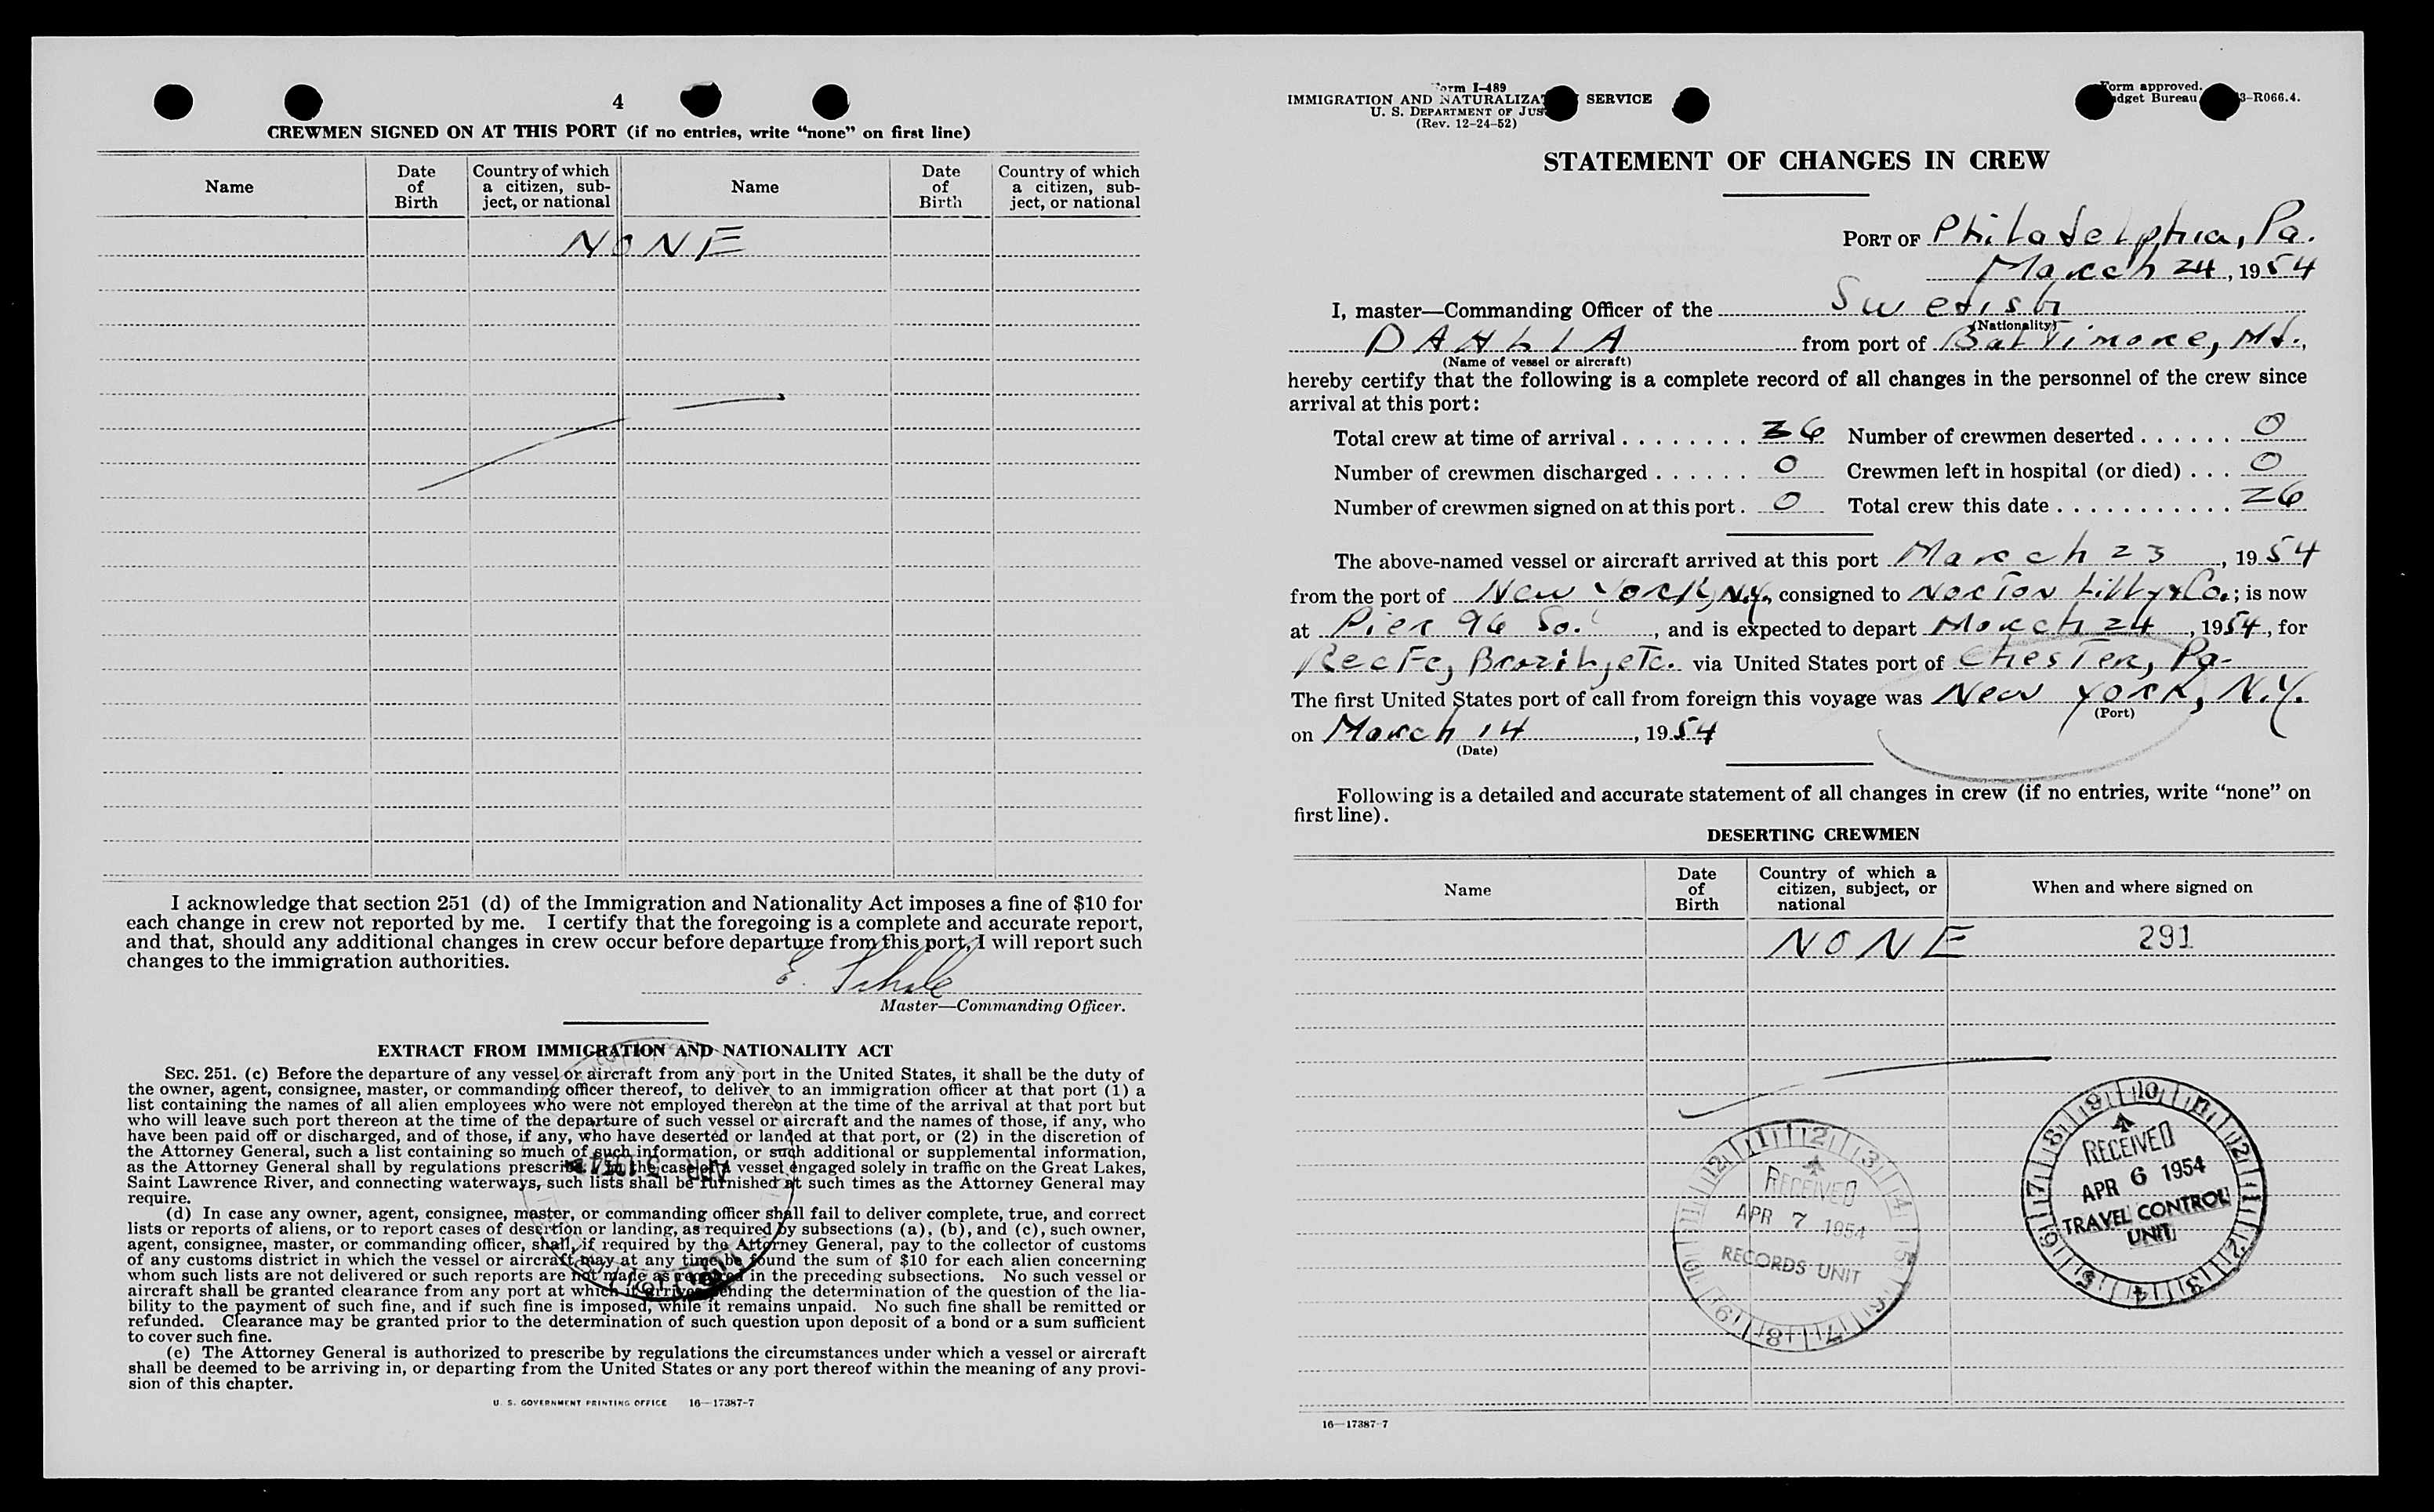 4
CREWMEN SIGNED ON AT THIS PORT (if no entries, write “none” on first line)
Name
Date of Birth
Country of which a citizen, sub-ject, or national
Name
Date of Birth
Country of which a citizen, sub-ject, or national
NONE
I acknowledge that section 251 (d) of the Immigration and Nationality Act imposes a fine of $10 for
each change in crew not reported by me. I certify that the foregoing is a complete and accurate report,
and that, should any additional changes in crew occur before departure from this port, I will report such
changes to the immigration authorities.
E.
Master—Commanding Officer.
EXTRACT FROM IMMIGRATION AND NATIONALITY ACT
SEC. 251. (c) Before the departure of any vessel or aircraft from any port in the United States, it shall be the duty of
the owner, agent, consignee, master, or commanding officer thereof, to deliver to an immigration officer at that port (1) a
list containing the names of all alien employees who were not employed thereon at the time of the arrival at that port but
who will leave such port thereon at the time of the departure of such vessel or aircraft and the names of those, if any, who
have been paid off or discharged, and of those, if any, who have deserted or landed at that port, or (2) in the discretion of
the Attorney General, such a list containing so much of such information, or such additional or supplemental information,
as the Attorney General shall by regulations prescribe. In the case of a vessel engaged solely in traffic on the Great Lakes,
Saint Lawrence River, and connecting waterways, such lists shall be furnished at such times as the Attorney General may
require.
(d) In case any owner, agent, consignee, master, or commanding officer shall fail to deliver complete, true, and correct
lists or reports of aliens, or to report cases of desertion or landing, as required by subsections (a), (b), and (c), such owner,
agent, consignee, master, or commanding officer, shall, if required by the Attorney General, pay to the collector of customs
of any customs district in which the vessel or aircraft may at any time be found the sum of $10 for each alien concerning
whom such lists are not delivered or such reports are not made as required in the preceding subsections. No such vessel or
aircraft shall be granted clearance from any port at which it arrives pending the determination of the question of the lia-
bility to the payment of such fine, and if such fine is imposed, while it remains unpaid. No such fine shall be remitted or
refunded. Clearance may be granted prior to the determination of such question upon deposit of a bond or a sum sufficient
to cover such fine.
(e) The Attorney General is authorized to prescribe by regulations the circumstances under which a vessel or aircraft
shall be deemed to be arriving in, or departing from the United States or any port thereof within the meaning of any provi-
sion of this chapter.
U. S. GOVERNMENT PRINTING OFFICE 16—17387-7
Form I-489
IMMIGRATION AND NATURALIZATION SERVICE
U. S. DEPARTMENT OF JUS
(Rev. 12-24-52)
Form approved.
Budget Bureau 3-R066.4.
STATEMENT OF CHANGES IN CREW
PORT OF Philadelphia, Pa.
March 24, 1954
I, master—Commanding Officer of the Swedish
(Nationality)
DAHLIA from port of Baltimore, Md.,
(Name of vessel or aircraft)
hereby certify that the following is a complete record of all changes in the personnel of the crew since
arrival at this port:
Total crew at time of arrival ........ 36 Number of crewmen deserted ...... 0
Number of crewmen discharged ...... 0 Crewmen left in hospital (or died) ... 0
Number of crewmen signed on at this port . 0 Total crew this date ........... 26
The above-named vessel or aircraft arrived at this port March 23, 1954
from the port of New York, N.Y., consigned to Norton Lilly & Co.; is now
at Pier 96 So., and is expected to depart March 24, 1954, for
RecFe, Brazil, etc. via United States port of Chester, Pa-
The first United States port of call from foreign this voyage was New York, N.Y.
(Port)
on March 14, 1954
(Date)
Following is a detailed and accurate statement of all changes in crew (if no entries, write “none” on
first line).
DESERTING CREWMEN
Name
Date of Birth
Country of which a citizen, subject, or national
When and where signed on
NONE 291
RECEIVED
APR 7 1954
RECORDS UNIT
RECEIVED
APR 6 1954
TRAVEL CONTROL
UNIT
16—17387-7